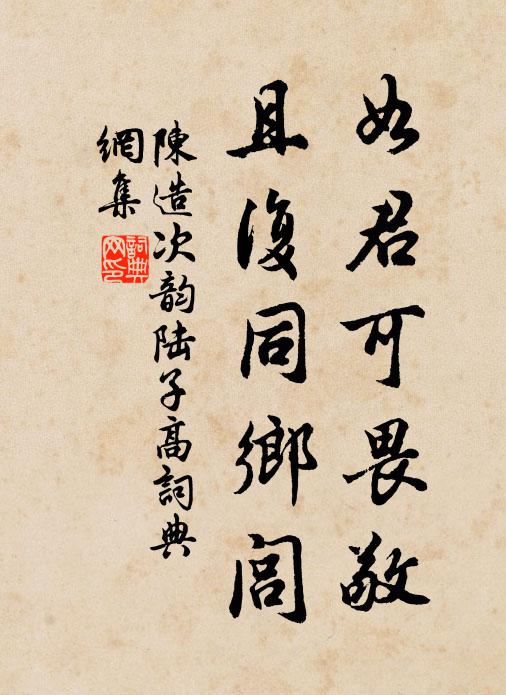 如君可畏敬
且復同鄉閭
陳造次韵陆子高詞典
網集
詞典网印